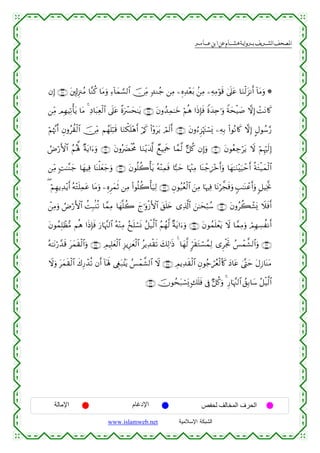 المصحف الشريف برواية هشام عن ابن عامر
۞ وَمَآ أَنزَلْنَا عَلَىٰ قَوْمِهِۦ مِنۢ بَعْدِهِۦ مِن جُندٍ مِّنَ ٱلسَّمَآءِ وَمَا كُنَّا مُنزِلِينَ إِن
كَانَتْ إِلَّا صَيْحَةً وَٰحِدَةً فَإِذَا هُمْ خَٰمِدُونَ يَٰحَسْرَةً عَلَى ٱلْعِبَادِ ۚ مَا يَأْتِيهِم مِّن
رَّسُولٍ إِلَّا كَانُوا۟ بِهِۦ يَسْتَهْزِءُونَ أَلَمْ يَرَوْا۟ كَمْ أَهْلَكْنَا قَبْلَهُم مِّنَ ٱلْقُرُونِ أَنَّهُمْ
إِلَيْهِمْ لَا يَرْجِعُونَ وَإِن كُلٌّ لَّمَّا جَمِيعٌ لَّدَيْنَا مُحْضَرُونَ وَءَايَةٌ لَّهُمُ ٱلْأَرْضُ
ٱلْمَيْتَةُ أَحْيَيْنَٰهَا وَأَخْرَجْنَا مِنْهَا حَبًّا فَمِنْهُ يَأْكُلُونَ وَجَعَلْنَا فِيهَا جَنَّٰتٍ مِّن
نَّخِيلٍ وَأَعْنَٰبٍ وَفَجَّرْنَا فِيهَا مِنَ ٱلْعُيُونِ لِيَأْكُلُوا۟ مِن ثَمَرِهِۦ وَمَا عَمِلَتْهُ أَيْدِيهِمْ ۖ
أَفَلَا يَشْكُرُونَ سُبْحَٰنَ ٱلَّذِى خَلَقَ ٱلْأَزْوَٰجَ كُلَّهَا مِمَّا تُنۢبِتُ ٱلْأَرْضُ وَمِنْ
أَنفُسِهِمْ وَمِمَّا لَا يَعْلَمُونَ وَءَايَةٌ لَّهُمُ ٱلَّيْلُ نَسْلَخُ مِنْهُ ٱلنَّهَارَ فَإِذَا هُم مُّظْلِمُونَ
وَٱلشَّمْسُ تَجْرِى لِمُسْتَقَرٍّ لَّهَا ۚ ذَٰلِكَ تَقْدِيرُ ٱلْعَزِيزِ ٱلْعَلِيمِ وَٱلْقَمَرَ قَدَّرْنَٰهُ
مَنَازِلَ حَتَّىٰ عَادَ كَٱلْعُرْجُونِ ٱلْقَدِيمِ لَا ٱلشَّمْسُ يَنۢبَغِى لَهَآ أَن تُدْرِكَ ٱلْقَمَرَ وَلَا
ٱلَّيْلُ سَابِقُ ٱلنَّهَارِ ۚ وَكُلٌّ فِى فَلَكٍ يَسْبَحُونَ
الحرف المخالف لحفص الإدغام الإمالة
www.islamweb.net الشبكة الإسلامية